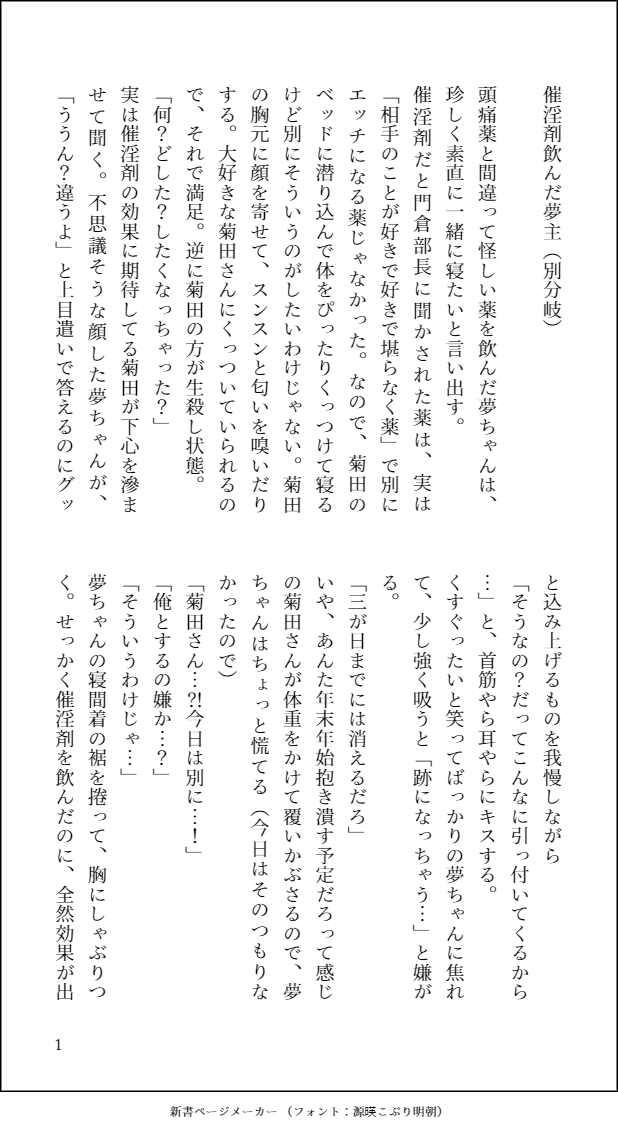 催淫剤飲んだ夢主（別分岐）
頭痛薬と間違って怪しい薬を飲んだ夢ちゃんは、
珍しく素直に一緒に寝たいと言い出す。
催淫剤だと門倉部長に聞かされた薬は、実は
「相手のことが好きで好きで堪らなく薬」で別に
エッチになる薬じゃなかった。なので、菊田の
ベッドに潜り込んで体をぴったりくっつけて寝る
けど別にそういうのがしたいわけじゃない。菊田
の胸元に顔を寄せて、スンスンと匂いを嗅いだり
する。大好きな菊田さんにくっついていられるの
で、それで満足。逆に菊田の方が生殺し状態。
「何？どした？したくなっちゃった？」
実は催淫剤の効果に期待してる菊田が下心を滲ま
せて聞く。不思議そうな顔した夢ちゃんが、
「ううん？違うよ」と上目遣いで答えるのにグッ
と込み上げるものを我慢しながら
「そうなの？だってこんなに引っ付いてくるから
…」と、首筋やら耳やらにキスする。
くすぐったいと笑ってばっかりの夢ちゃんに焦れ
て、少し強く吸うと「跡になっちゃう…」と嫌が
る。
「三が日までには消えるだろ」
いや、あんた年末年始抱き潰す予定だろって感じ
の菊田さんが体重をかけて覆いかぶさるので、夢
ちゃんはちょっと慌てる（今日はそのつもりな
かったので）
「菊田さん…⁈今日は別に…！」
「俺とするの嫌か…？」
「そういうわけじゃ…」
夢ちゃんの寝間着の裾を捲って、胸にしゃぶりつ
く。せっかく催淫剤を飲んだのに、全然効果が出
1
新書ページメーカー（フォント：源暎こぶり明朝）